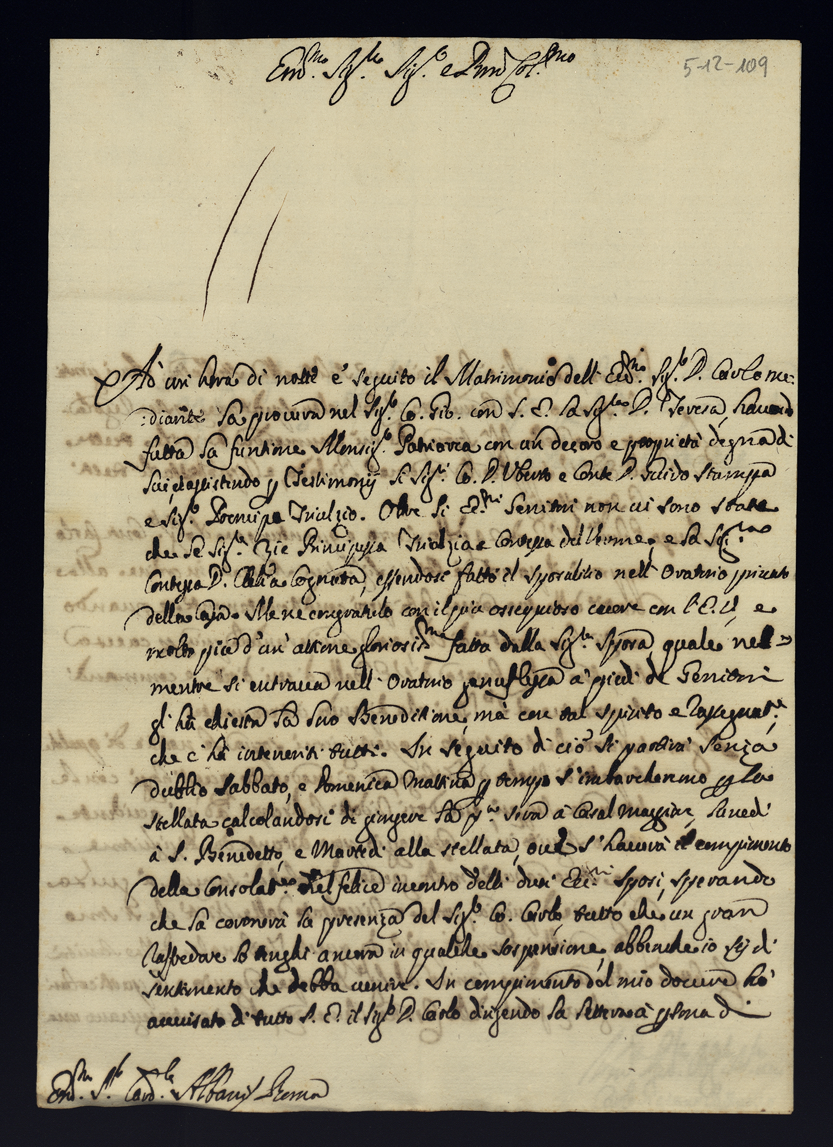 Em.mo Sig.re Sig.r e Pron Col.mo
5-12-109
Ad un hora di notte è seguito il Matrimonio dell' Ecc.mo Sig.r D. Carlo me-
:diante la procura nel Sig.r Co. Gio. con S. E. la Sig.ra D. Teresa, havendo
fatta la funtione Monsig.r Patriarca con un decoro e proprietà degna di
Lui, et assistendo p Testimonij li Sig.ri Co. D. Uberto e Conte D. Guido Stampa
e Sig.r Prencipe Triulzio. Oltre li Ecc.mi Genitori non vi sono state
che le Sig.re Zie Principessa Triulzia e Contessa del Verme, e la Sig.ra
Contessa D. Clelia Cognata, essendosi fatto il sposalitio nell' Oratorio privato
della Casa. Me ne congratulo con il più ossequioso cuore con l'E. V., e
molto più d'un' attione gloriosis.ma fatta dalla Sig.ra Sposa, quale nel
mentre si entrava nell' Oratorio genuflessa à piedi de Genitori
gl' hà chiesta la Suo Beneditione, mà con tal spirito e rassegnat.e
che c'hà inteneriti tutti. In seguito di ciò si partirà senza
dubbio Sabbato, e Domenica Mattina p tempo s'imbarcheremo p la
stellata calcolandosi di giongere la p.ma sera à Casal Maggiore, Lunedì
à S. Benedetto, e Martedì alla stellata, ove s'haverà il compimento
della Consolat.ne del felice incontro delli dui Ecc.mi Sposi, sperando
che la coronerà la presenza del Sig.r Co. Carlo, tutto che un gran
raffredore lo tenghi ancora in qualche sospensione, abbenche io sij di
sentimento che debba venire. In compimento del mio dovere hò
avvisato di tutto S. E. il Sig.r D. Carlo dirigendo la lettera à Persona di
Em.mo S.r Card.le Albani Roma